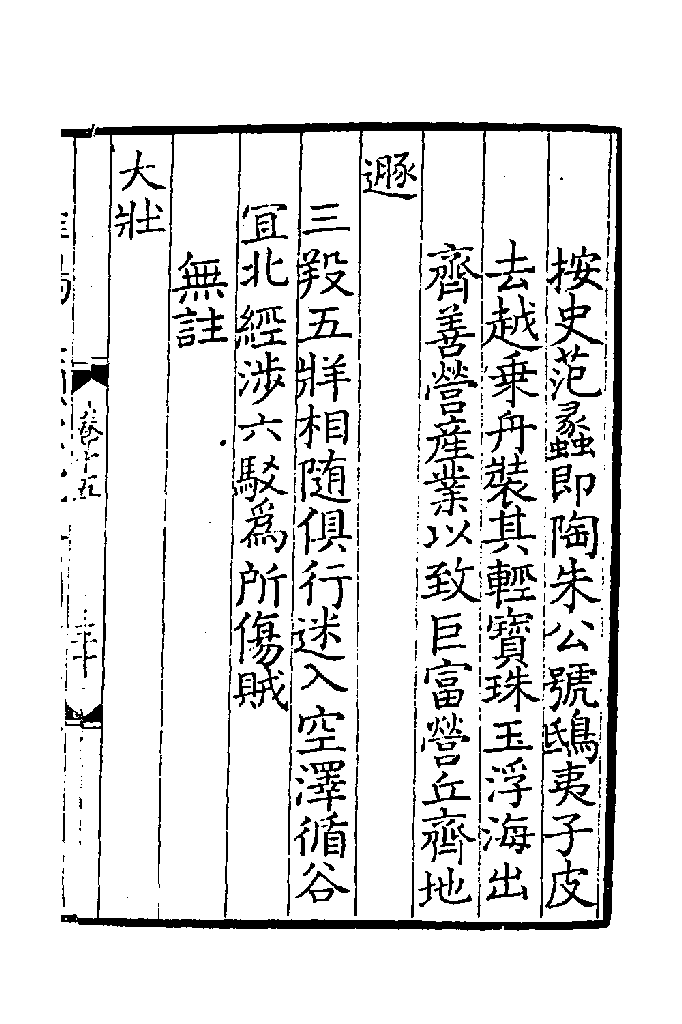 按史范蠡即陶朱公號鴟夷子皮
去越乗舟裝其輕寳珠玉浮海出
齊善營産業以致巨富營丘齊地
遯
三羖五牂相随俱行迷入空澤循谷
宜北經涉六駁為所傷賊
無註
大壯
卷十五